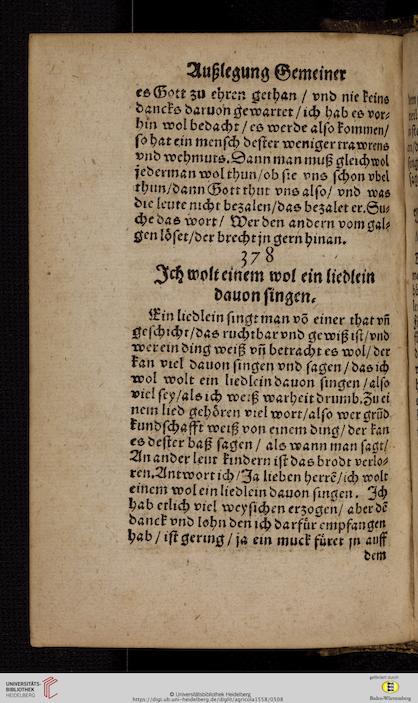 Außlegung Gemeiner
es Gott zu ehren gethan / vnd nie keins
dancks daruon gewartet / ich hab es vor⸗
hin wol bedacht / es werde also kommen /
so hat ein mensch dester weniger trawrens
vnd wehmuts. Dann man muß gleichwol
jederman wol thun / ob sie vns schon vbel
thun / dann Gott thut vns also / vnd was
die leute nicht bezalen / das bezalet er. Su⸗
che das wort / Wer den andern vom gal⸗
gen löset / der brecht jn gern hinan.
378
Jch wolt einem wol ein liedlein
dauon singen.
Ein liedlein singt man vō einer that vn̄
geschicht / das ruchtbar vnd gewiß ist / vnd
wer ein ding weiß vn̄ betracht es wol / der
kan viel dauon singen vnd sagen / das ich
wol wolt ein liedlein dauon singen / also
viel sey / als ich weiß warheit drumb. Zu ei
nem lied gehören viel wort / also wer grūd
kundschafft weiß von einem ding / der kan
es dester baß sagen / als wann man sagt /
An ander leut kindern ist das brodt verlo⸗
ren. Antwort ich / Ja lieben herrē / ich wolt
einem wol ein liedlein dauon singen. Jch
hab etlich viel weysichen erzogen / aber dē
danck vnd lohn den ich darfür empfangen
hab / ist gering / ja ein muck füret jn auff
dem
UNIVERSITÄTS-
BIBLIOTHEK
HEIDELBERG
© Universitätsbibliothek Heidelberg
https://digi.ub.uni-heidelberg.de/diglit/agricola1558/0508
gefördert durch
Baden-Württemberg